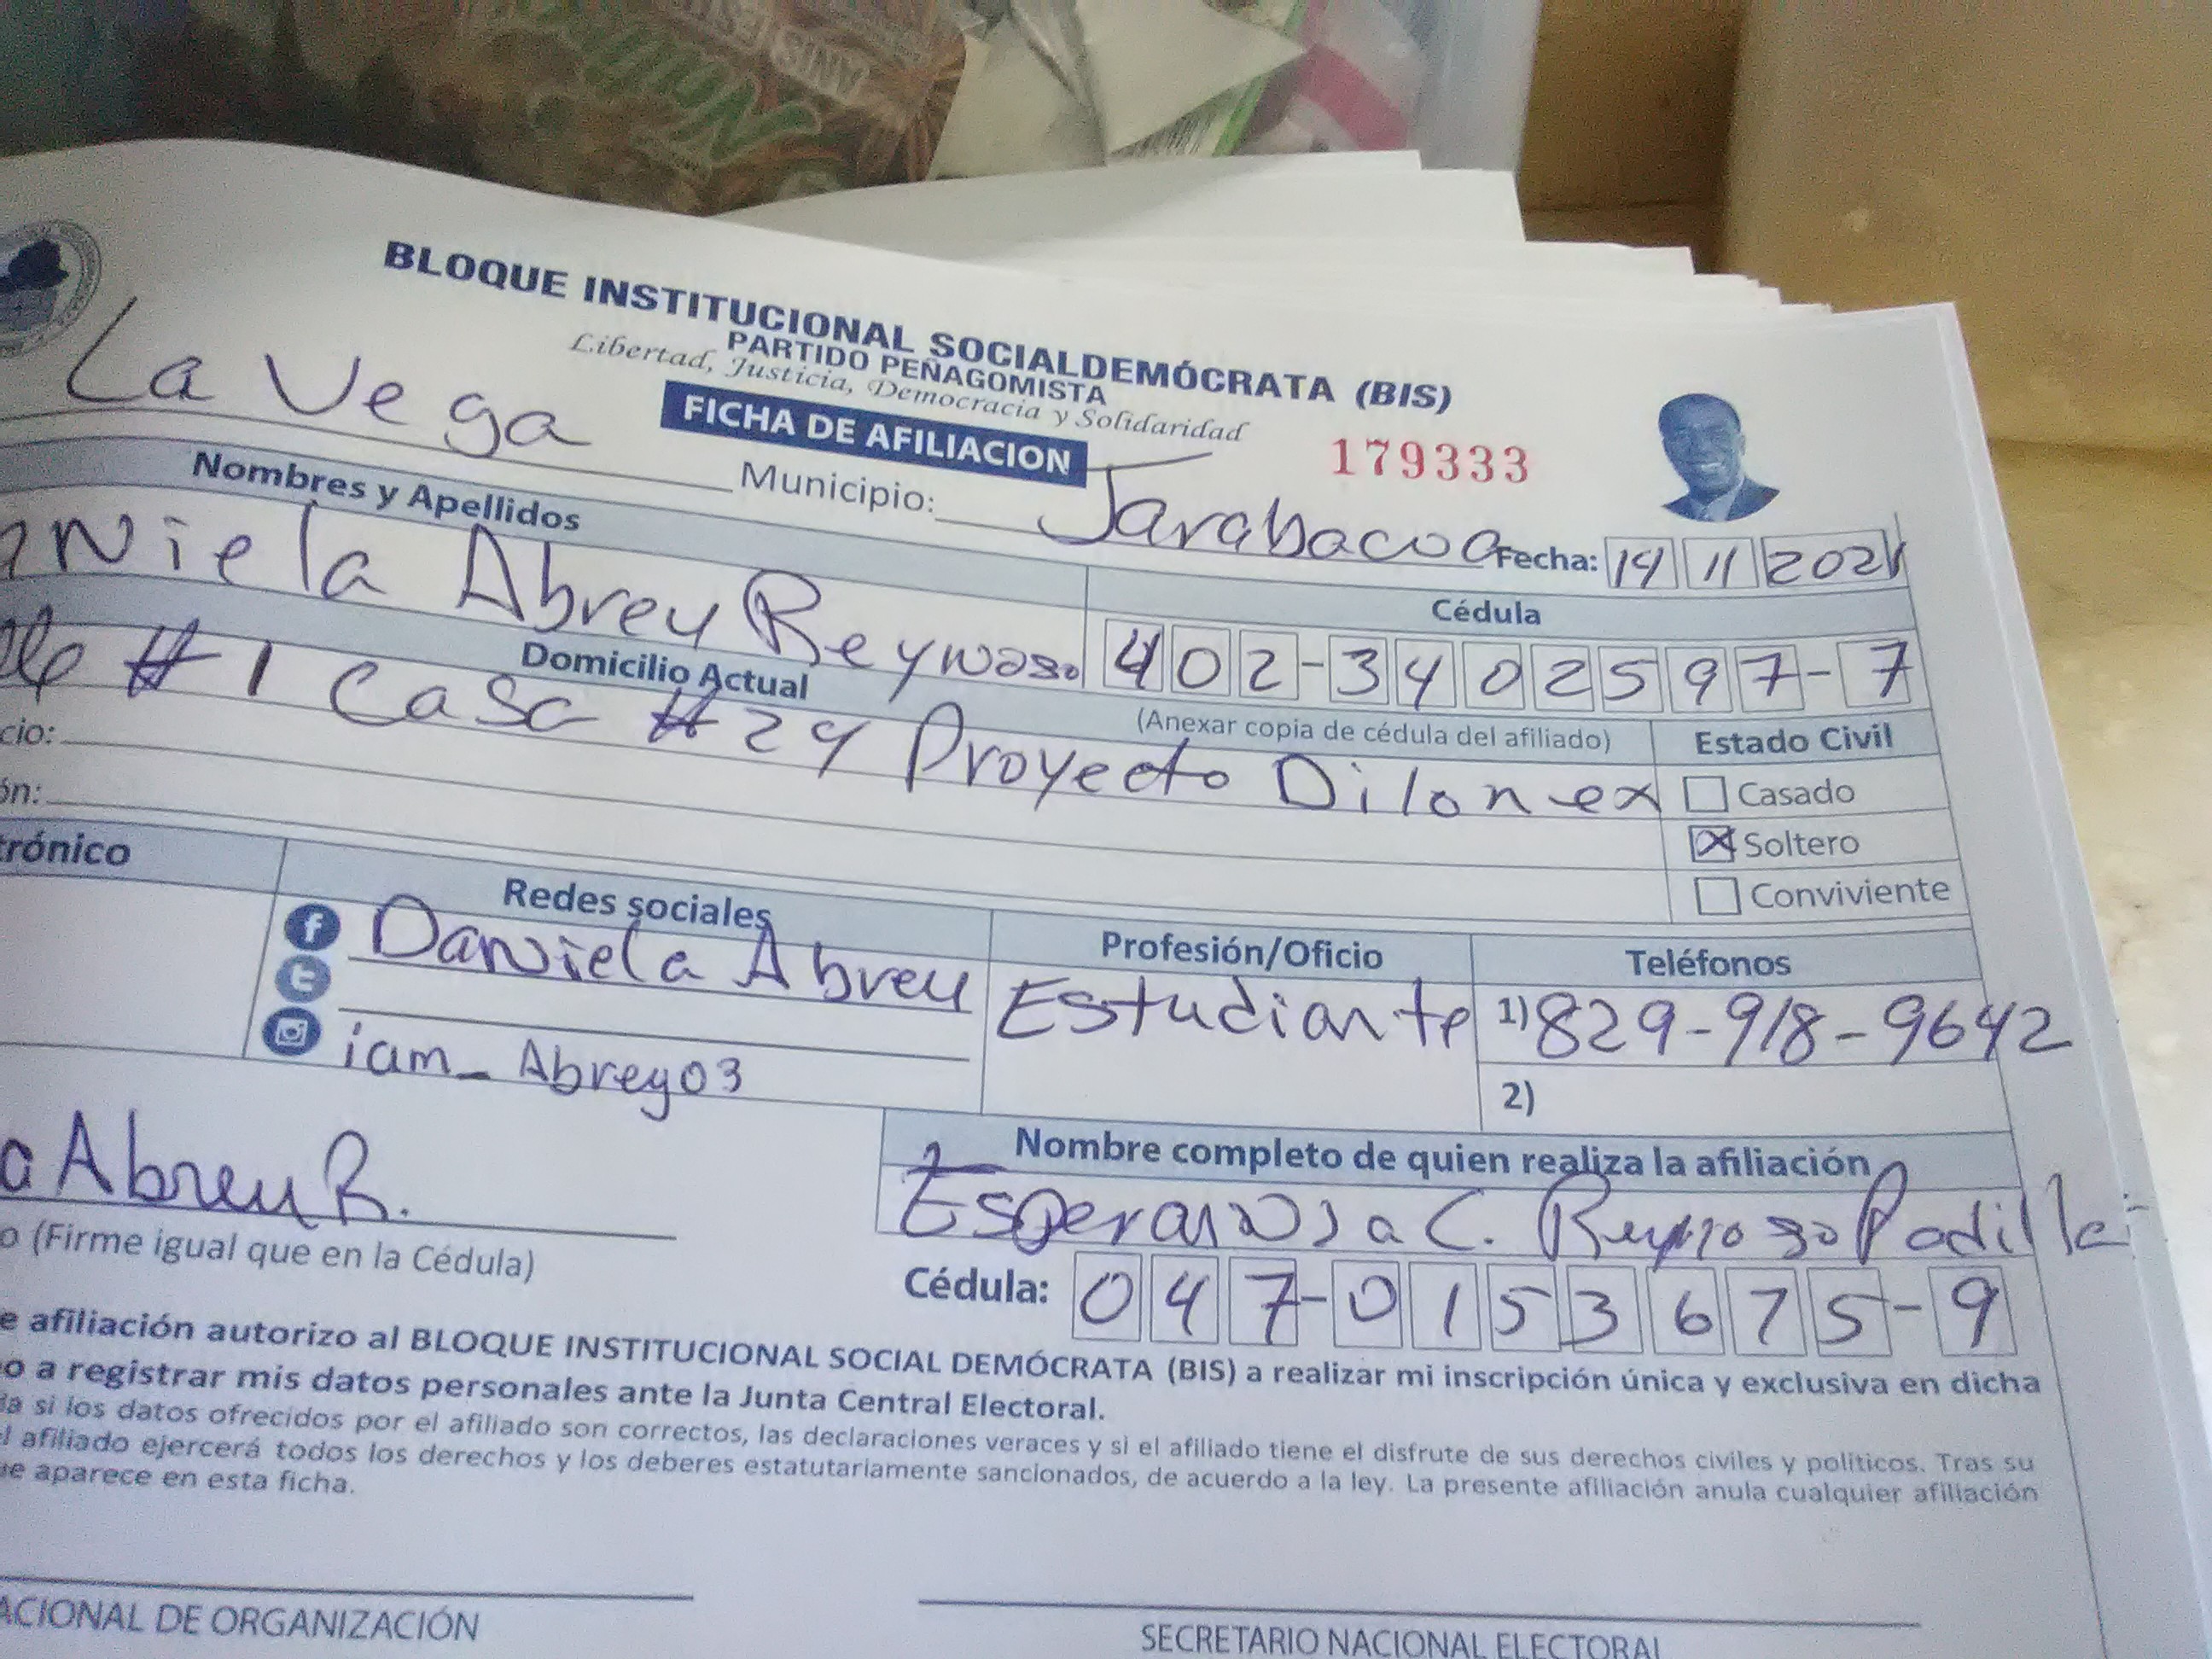 BLOQUE INSTITUCIONAL SOCIALDEMÓCRATA (BIS)
PARTIDO PEÑAGOMISTA
Libertad, Justicia, Democracia y Solidaridad
FICHA DE AFILIACION
179333
La Vega
Municipio: Jarabacoa
Fecha: 14 11 2021
Nombres y Apellidos
Cédula
aniela Abreu Reynoso
402-3402597-7
Domicilio Actual
(Anexar copia de cédula del afiliado)
#1 Casa #24 Proyecto Dilonex
Estado Civil
Casado
Soltero
Conviviente
cio:
ón:
trónico
Redes sociales
Profesión/Oficio
Teléfonos
Daniela Abreu
Estudiante
1) 829-918-9642
iam_Abrey03
2)
Nombre completo de quien realiza la afiliación
a Abreu R.
Esperansa C. Reynoso Padilla
o (Firme igual que en la Cédula)
Cédula: 047-0153675-9
e afiliación autorizo al BLOQUE INSTITUCIONAL SOCIAL DEMÓCRATA (BIS) a realizar mi inscripción única y exclusiva en dicha
o a registrar mis datos personales ante la Junta Central Electoral.
la si los datos ofrecidos por el afiliado son correctos, las declaraciones veraces y si el afiliado tiene el disfrute de sus derechos civiles y políticos. Tras su
l afiliado ejercerá todos los derechos y los deberes estatutariamente sancionados, de acuerdo a la ley. La presente afiliación anula cualquier afiliación
ue aparece en esta ficha.
ACIONAL DE ORGANIZACIÓN
SECRETARIO NACIONAL ELECTORAL